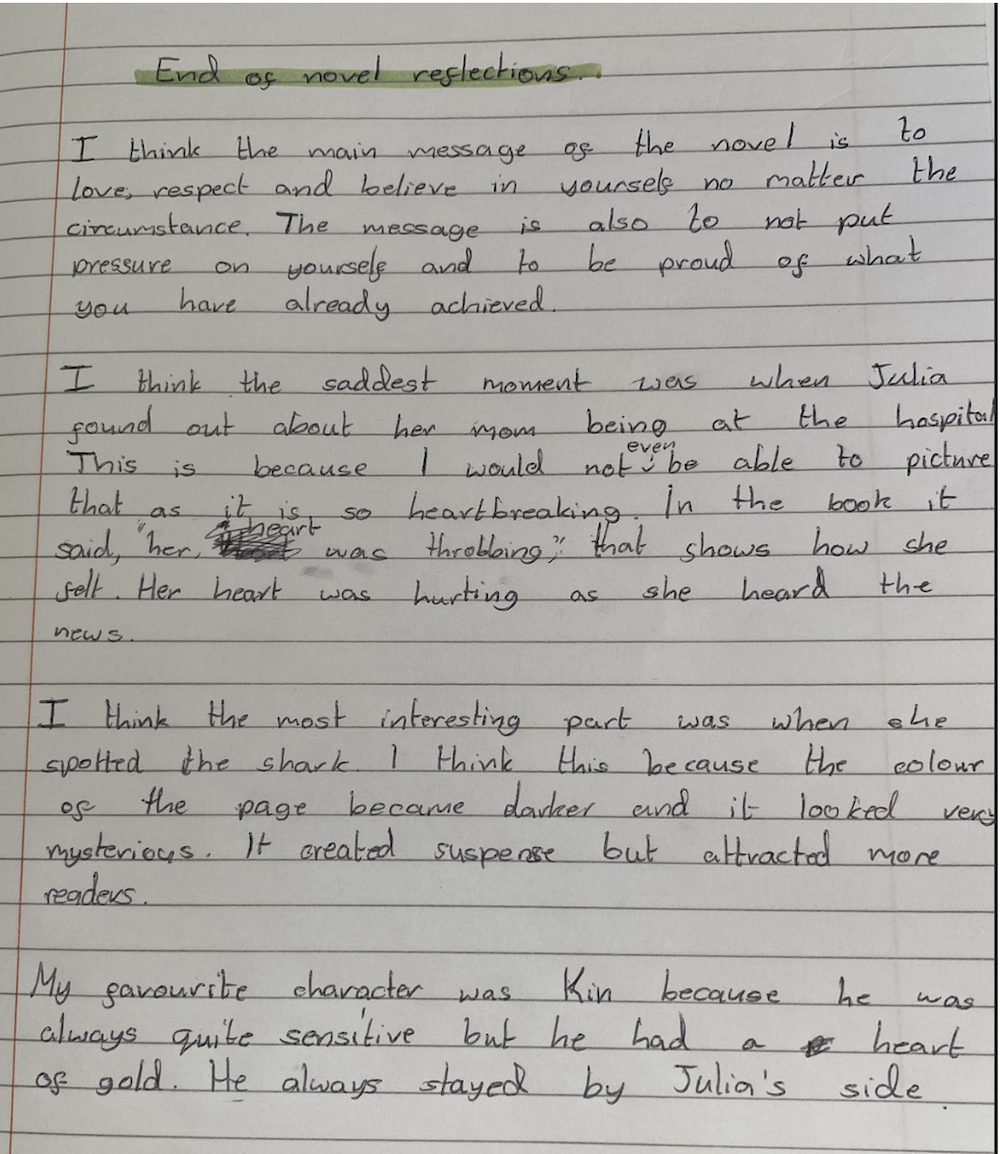 End of novel reflections.
I think the main message of the novel is to
love, respect and believe in yourself no matter the
circumstance. The message is also to not put
pressure on yourself and to be proud of what
you have already achieved.
I think the saddest moment was when Julia
found out about her mom being at the hospital
This is because I would not even be able to picture
that as it is so heartbreaking. In the book it
said, "her heart was throbbing," that shows how she
felt. Her heart was hurting as she heard the
news.
I think the most interesting part was when she
spotted the shark. I think this because the colour
of the page became darker and it looked very
mysterious. It created suspense but attracted more
readers.
My favourite character was Kin because he was
always quite sensitive but he had a heart
of gold. He always stayed by Julia's side.